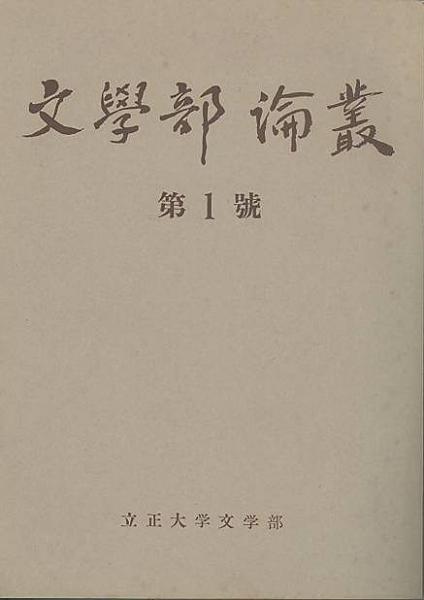 文學部論叢
第1號
立正大学文学部